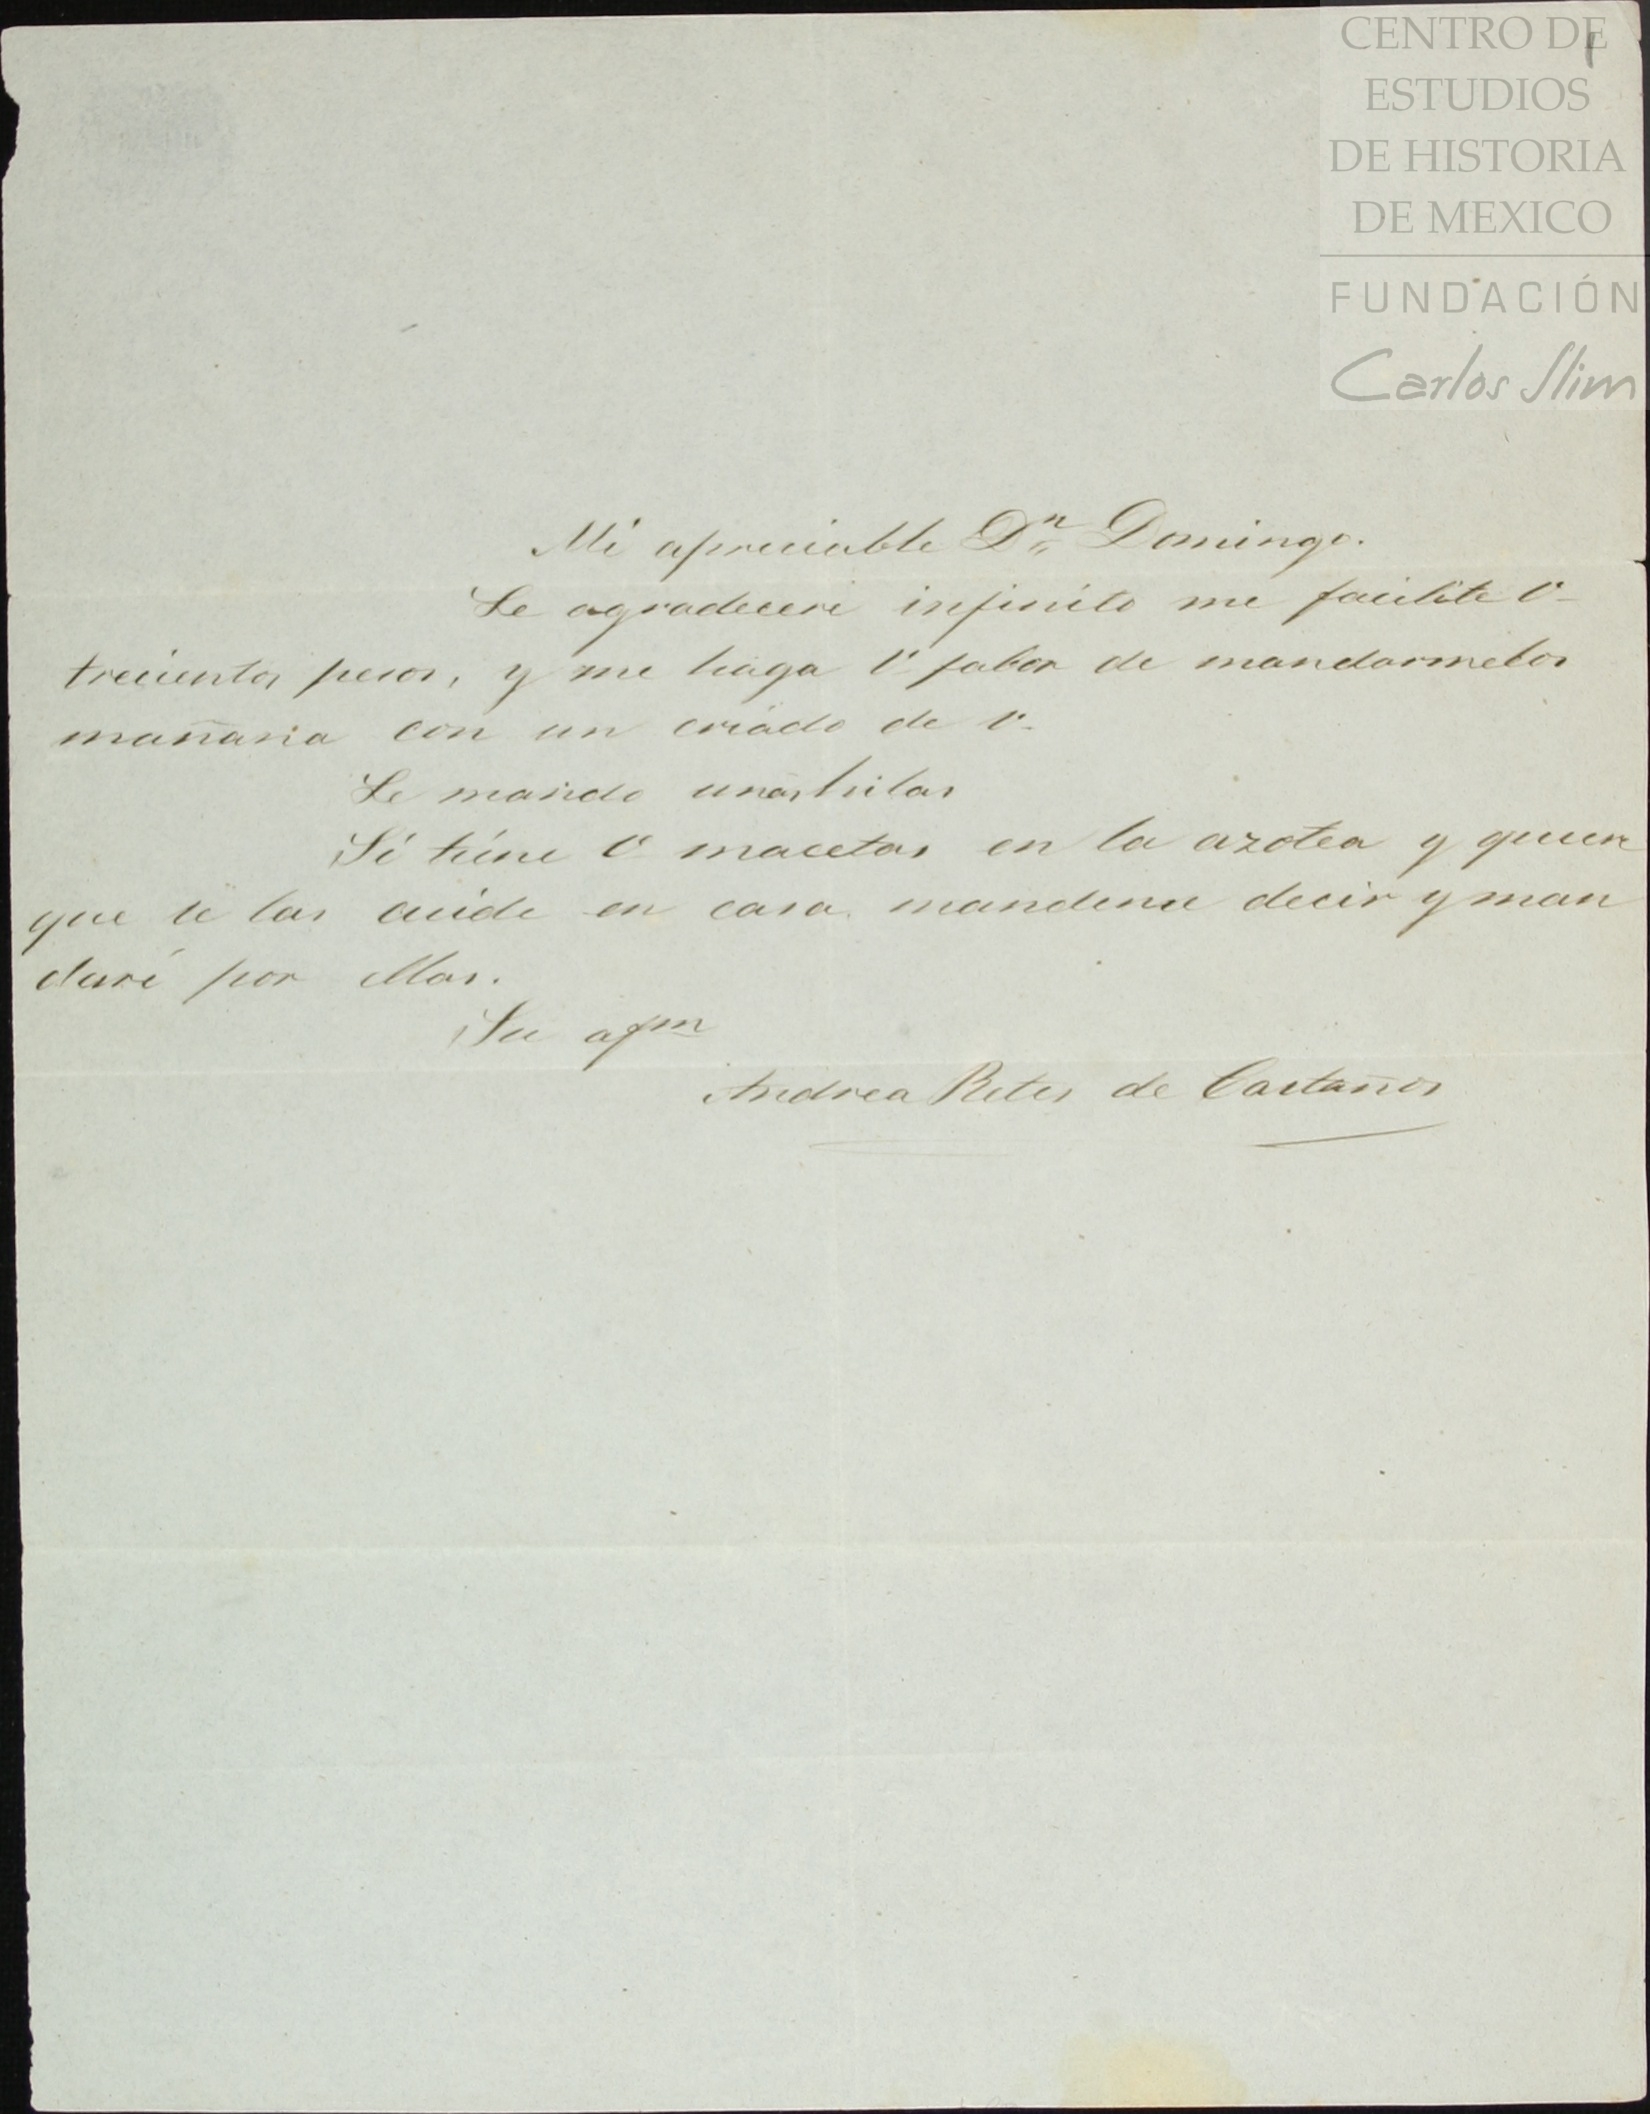 CENTRO DE
ESTUDIOS
DE HISTORIA
DE MEXICO
FUNDACIÓN
Carlos Slim
Mi apreciable Dn Domingo.
Le agradecere infinito me facilite V.
trecientos pesos, y me haga V. fabor de mandarmelos
mañana con un criado de V.
Le mando unas hilas
Si tiene V. macetas en la azotea y quiere
que se las cuide en casa mandeme decir y man
daré por ellas.
Su afma
Andrea Retes de Castaños